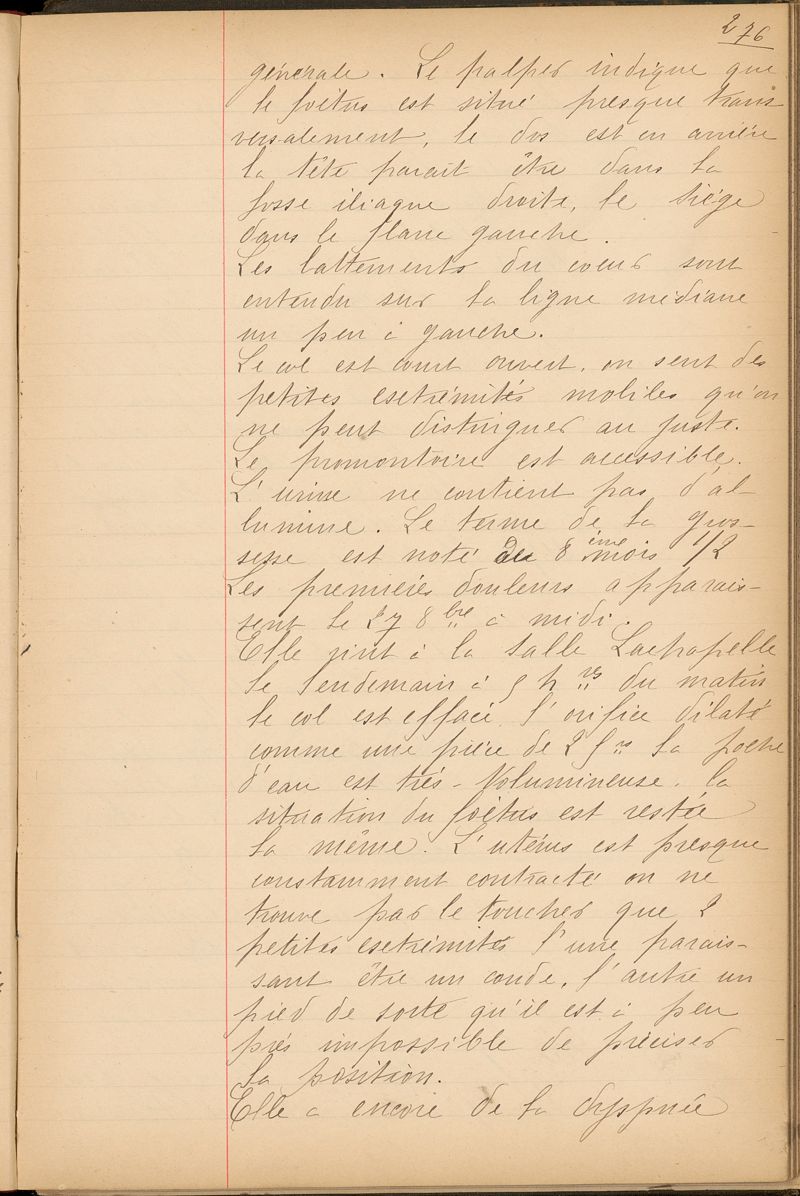 276
générale. Le palper indique que
le foëtus est situé presque trans
versalement, le dos est en arrière
la tête parait être dans la
fosse iliaque droite, le siège
dans le flanc gauche.
Les battements du coeur sont
entendu sur la ligne médiane
un peu à gauche.
Le col est court ouvert, on sent des
petites extrémités mobiles qu'on
ne peut distinguer au juste.
Le promontoire est accessible.
L'urine ne contient pas d'al-
bumine. Le terme de la gros-
sesse est noté de 8 ème mois 1/2
Les premières douleurs apparais-
sent le 27 8bre à midi.
Elle vint à la salle Lachapelle
le lendemain à 9 hres du matin
le col est effacé, l'orifice dilaté
comme une pièce de 2 frs la poche
d'eau est très-volumineuse. la
situation du foëtus est restée
la même. L'utérus est presque
constamment contracté on ne
trouve par le toucher que 2
petites extrémités l'une parais-
sant être un coude, l'autre un
pied de sorte qu'il est à peu
près impossible de préciser
la position.
Elle a encore de la dyspnée